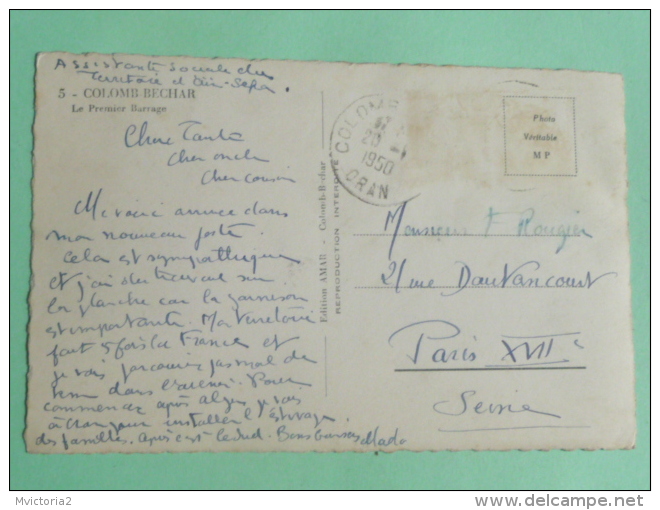 Assistante sociale chez
Territoire d' Aïn-Sefra.
5 - COLOMB-BECHAR
Le Premier Barrage
Chère Tante
Cher oncle
Cher cousin
Me voici arrivée dans
mon nouveau poste.
Cela est sympathique
et j'ai du travail sur
la planche car la garnison
est importante. Mon territoire
fait 5 fois la France et
je vais parcourir pas mal de
dans l'avenir. Pour
commencer après Alger je vais
à Oran pour installer l'estivage
des familles. Après c'est le Sud. Bons baisers Mado
Edition AMAR - Colomb-Bechar
REPRODUCTION INTERDITE
COLOMB
28 -
1950
ORAN
Photo
Véritable
M P
Monsieur F Rougier
21 rue Dautancourt
Paris XVII e
Seine
Mvictoria2
delcampe.net